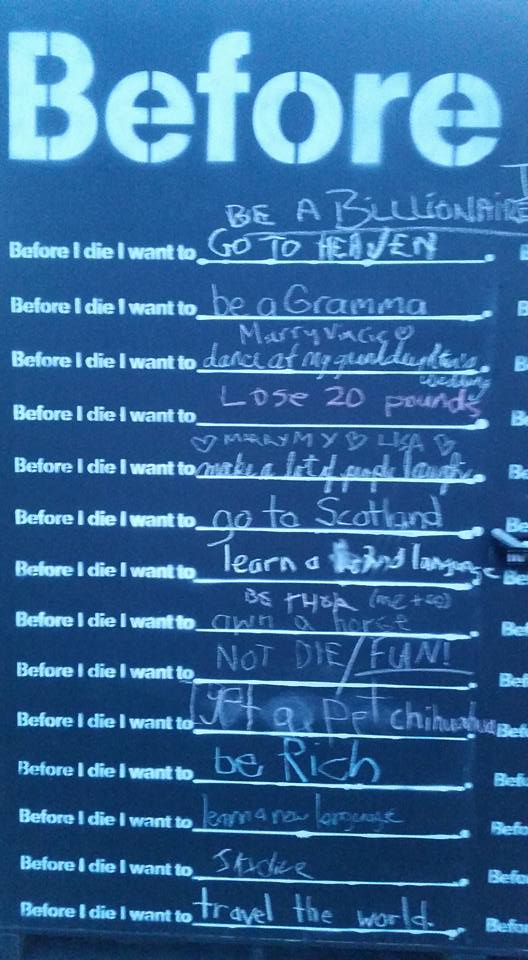 Before
BE A BiLLiONAiRE
Before I die I want to GO TO HEAVEN.
Before I die I want to be a Gramma.
Marry
Before I die I want to dance at my granddaughter's.
wedding
Before I die I want to Lose 20 pounds.
♡ MARRY MY ♡ LISA ♡
Before I die I want to make a lot of people laugh.
Before I die I want to go to Scotland.
Before I die I want to learn a language.
BE (me too)
Before I die I want to own a horse.
Before I die I want to NOT DIE/FUN!.
Before I die I want to get a pet chihuahua.
Before I die I want to be Rich.
Before I die I want to learn a new language.
Before I die I want to.
Before I die I want to travel the world.